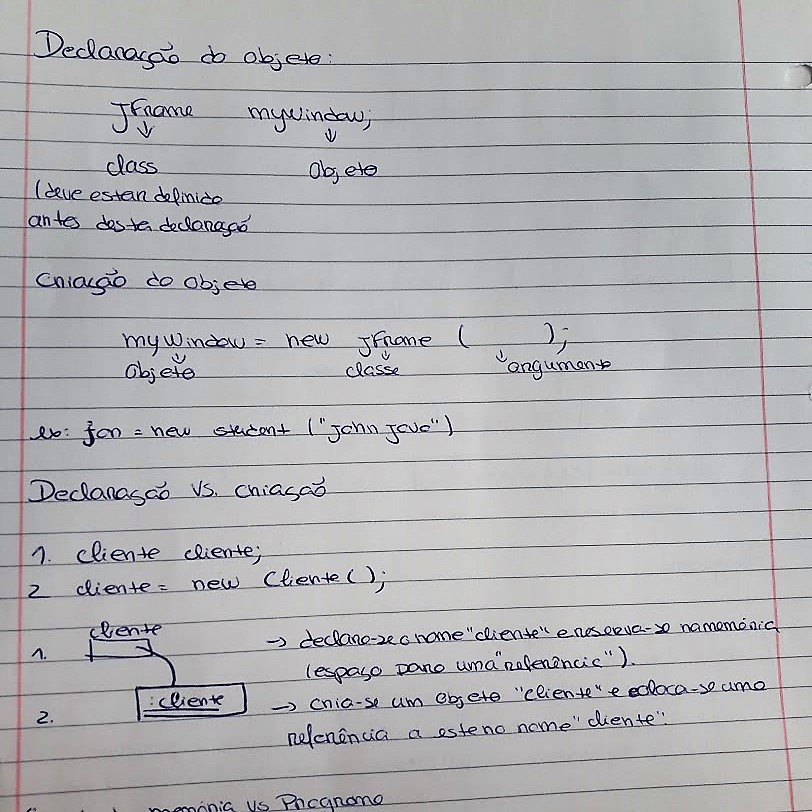 Declaração do objeto:
JFrame myWindow;
↓ ↓
class Objeto
(deve estar definido
antes desta declaraçaõ
Criação do objeto
myWindow = new JFrame ( );
↓ ↓ ↓
Objeto classe argumento
ex: jon = new student ("John Java")
Declaração VS. criação
1. cliente cliente;
2 cliente = new Cliente();
cliente
1. → declara-se o nome "cliente" e reserva-se na memória
(espaço para uma "referência").
:cliente
2. → cria-se um objeto "cliente" e coloca-se uma
referência a este no nome "cliente".
memória vs Programa